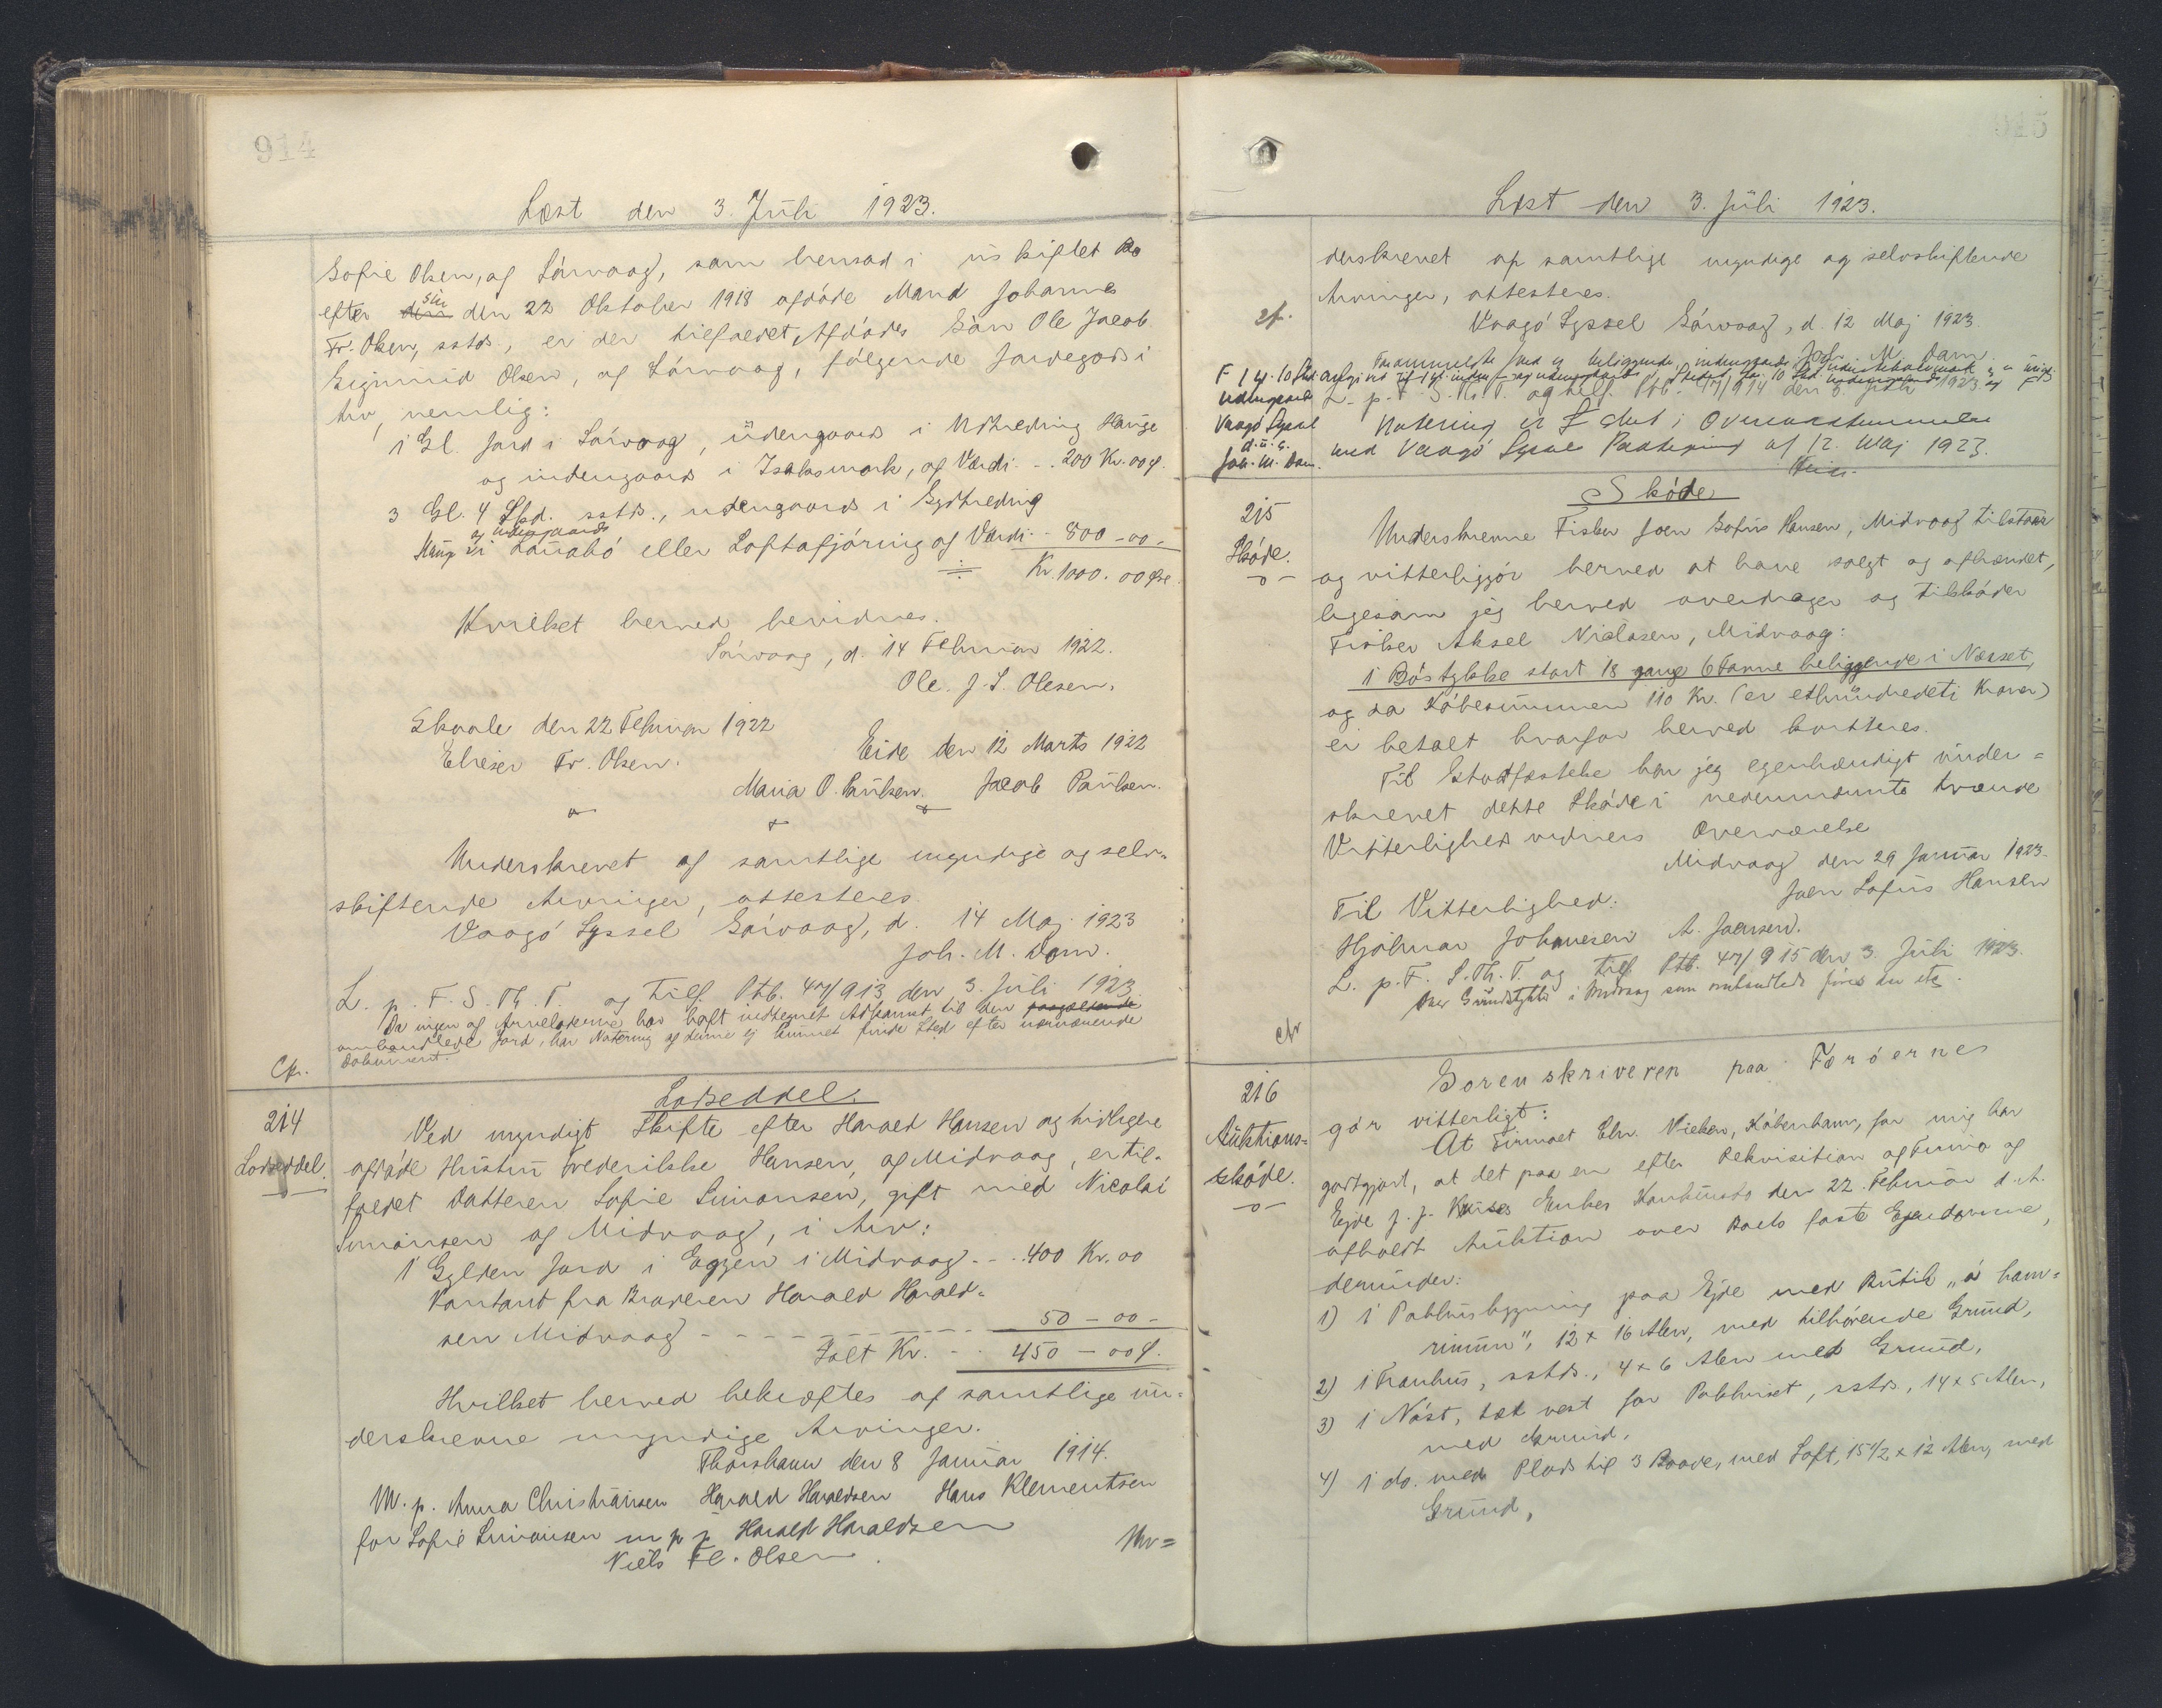 914
Læst den 3. Juli 1923.
Sofie Olsen, af Sórvaag, som hensad i uskiftet Bo
efter sin den 22 Oktober 1918 afdóde Mand Johannes
Fr. Olsen, sstds., er der tilfaldet Afdódes Són Ole Jacob
Sigmund Olsen, af Sórvaag, fólgende Jordegods i
Arv, nemlig:
1 Gl. Jord i Sórvaag, udengaards i Hauge
og indengaards i, af Værdi - . 200 Kr. 00 Ø.
3 Gl. 4 Skd. sstds., udengaards i Sydtreding
og indengaards
i eller Loftafjóring af Værdi - 800 - 00 -
Kr. 1000. 00 Øre.
Hvilket herved bevidnes.
Sórvaag, d. 14 Februar 1922.
Ole. J. S. Olesen.
Skaale den 22 Februar 1922
Elieser Fr. Olsen.
Eide den 12 Marts 1922
Maria O. Paulsen. Jacob Paulsen.
Underskrevet af samtlige myndige og selv-
skiftende Arvinger, attesteres.
Vaagó Syssel Sórvaag, d. 14 Maj 1923
Joh. M. Dam.
L. p. F. S. Th. T. og Tilf. Ptb. 47/913 den 3. Juli 1923
Da ingen af Arveladerne har haft indtegnet Adkomst til den paagældende
omhandlede Jord, har Notering af denne ej kunnet finde Sted efter nærværende
Dokument
Cfr.
Lodseddel.
214
Lodseddel.
Ved myndigt Skifte efter Harald Hansen og tidligere
afdóde Hustru Frederikke Hansen, af Midvaag, er til-
faldet Datteren Sofie Simonsen, gift med Nicolai
Simonsen af Midvaag, i Arv:
1 Gylden Jord i Eggen i Midvaag - - . 400 Kr. 00
Kontant fra Broderen Harald Harald-
sen Midvaag - - - - - 50 - 00 -
Ialt Kr. - - 450 - 00 Ø.
Hvilket herved bekræftes af samtlige un-
derskrevne myndige Arvinger.
Thorshavn den 8 Januar 1914.
M. p. Anna Christiansen Harald Haraldsen Hans Klementsen
for Sofie Simonsen m p p Harald Haraldsen
Niels Fl. Olsen.
Un=
915
Læst den 3. Juli 1923.
derskrevet af samtlige myndige og selvskiftende
Arvinger, attesteres.
Vaagó Syssel Sórvaag, d. 12 Maj 1923.
Joh. M. Dam.
Vaagó Syssel
d.u.s.
Joh. M. Dam.
L. p. F. S. Th. T. og Tilf. Ptb. 47/914 den 3. Juli 1923
Notering er sket i Overensstemmelse
med Vaagó Syssel Paategning af 12. Maj 1923.
Skóde
215
Skóde.
Underskrevne Fisker Joen Sofus Hansen, Midvaag tilstaar
og vitterliggjór herved at have solgt og afhændet,
ligesom jeg herved overdrager og tilskóder
Fisker Aksel Niclasen, Midvaag:
1 Bóstykke stort 18 gange 6 Favne beliggende i Næsset,
og da Kóbesummen 110 Kr. (er ethundredeti Kroner)
er betalt hvorfor herved kvitteres.
Til Stadfæstelse har jeg egenhændigt under=
skrevet dette Skóde i nedennævnte tvende
Vitterlighedsvidners Overværelse
Midvaag den 29 Januar 1923.
Joen Sofus Hansen
Til Vitterlighed:
Hjálmar Johanesen A. Joensen.
L. p. F. S. Th. T. og Tilf. Ptb. 47/915 den 3. Juli 1923.
216
Auktions=
skóde.
Sorenskriveren paa Færóernes
gór vitterligt:
At Firmaet Chr. Nielsen, Kóbenhavn, for mig har
godtgjort, at det paa en efter Rekvisition af Firma af
Ejde J. J. Enkes Konkursbo den 22. Februar d. A.
afholdt Auktion over Boets faste Ejendomme,
derunder:
1) 1 Pakhusbygning paa Ejde med Butik „á ham=
rinum", 12 x 16 Alen, med tilhórende Grund,
2) 1 Tranhus, sstds., 4 x 6 Alen med Grund,
3) 1 Nóst, tæt vest for Pakhuset, sstds., 14 x 5 Alen,
med Grund,
4) 1 do. med Plads til 3 Baade, med Loft, 15 1/2 x 12 Alen, med
Grund,